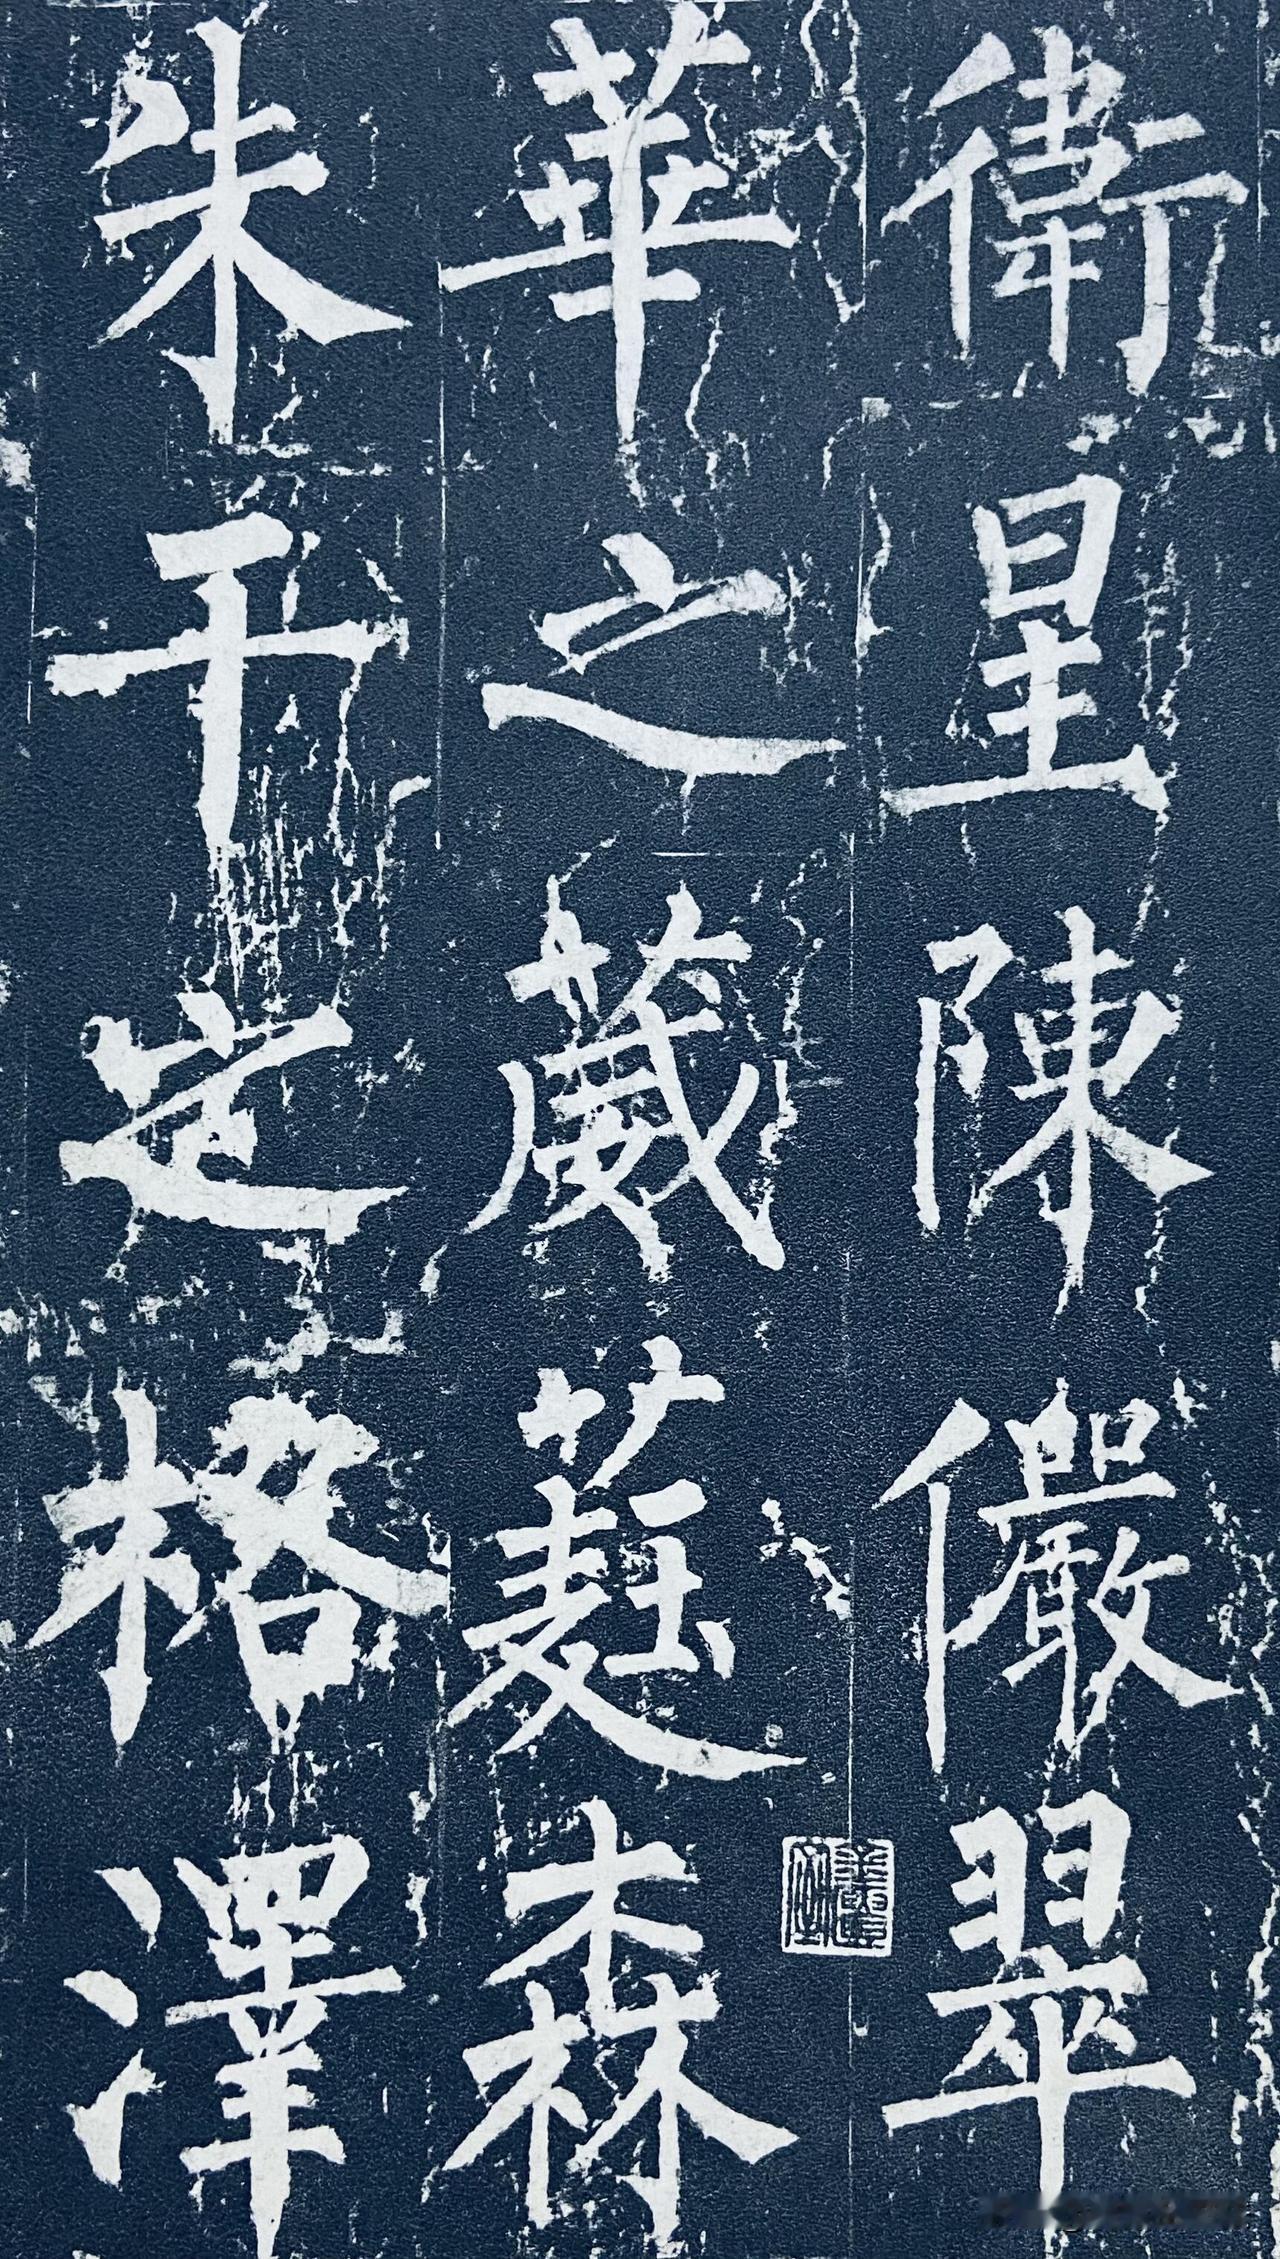 衛星陳儼翠
華之葳蕤森
朱干之格澤